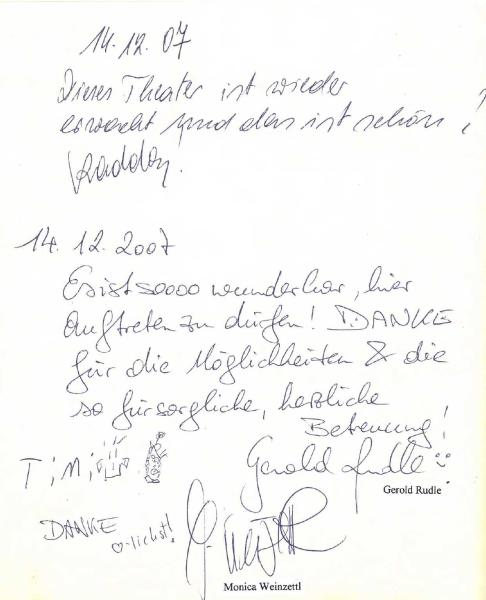 14.12.07
Dieses Theater ist wieder
erwacht und das ist schön!
14.12.2007
Es ist soooo wunderbar, hier
Auftreten zu dürfen! DANKE
für die Möglichkeiten & die
so fürsorgliche, herzliche
Betreuung!
Gerold Rudle
Gerold Rudle
DANKE
♡-lichst!
Monica Weinzettl